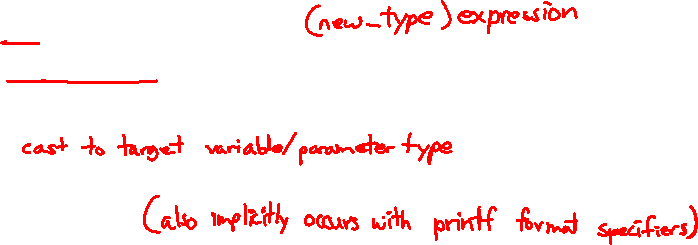 (new_type) expression
cast to target variable/parameter type
(also implicitly occurs with printf format specifiers)